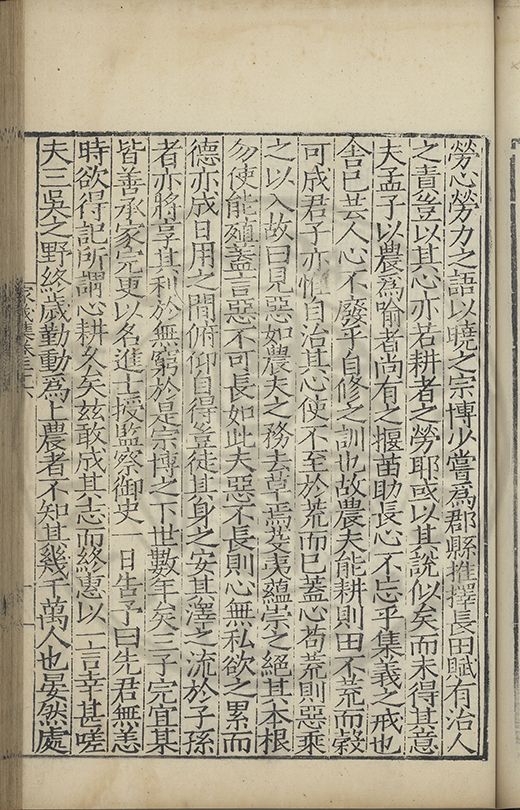 勞心勞力之語以曉之宗博少嘗為郡縣推擇長田賦有治人
之責豈以其心亦若耕者之勞耶或以其說似矣而未得其意
夫孟子以農為喻者尚有之揠苗助長心不忘乎集義之戒也
舍已芸人心不廢乎自修之訓也故農夫能耕則田不荒而穀
可成君子亦惟自治其心使不至於荒而已蓋心苟荒則惡乘
之以入故曰見惡如農夫之務去草焉芟夷蘊崇之絕其本根
勿使能殖蓋言惡不可長如此夫惡不長則心無私欲之累而
德亦成日用之間俯仰自得豈徒其身之安其澤之流於子孫
者亦將享其利於無窮於是宗博之下世數年矣三子完宜某
皆善承家完更以名進士授監察御史一日告予曰先君無恙
時欲得記所謂心耕久矣玆敢成其志而終惠以一言幸甚嗟
夫三吳之野終歲勤動為上農者不知其幾千萬人也晏然處